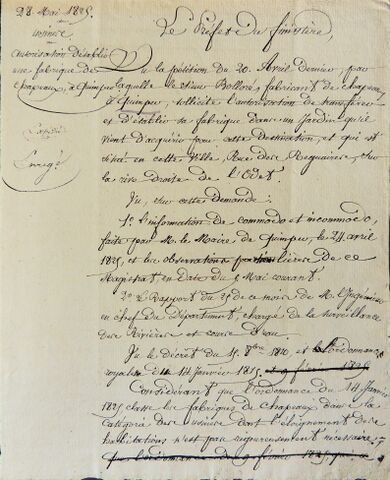 28 Mai 1825.
Le Préfet du finistère,
usines
autorisation d'établir
une fabrique de
chapeaux, à Quimper
Vu la pétition du 20. Avril Dernier, par
laquelle le Sieur Bolloré, fabricant de chapeaux
à Quimper, sollicite l'autorisation de transférer
Expédié
et d'établir sa fabrique dans un jardin qu'il
vient d'acquérir pour cette destination, et qui est
Enregé
situé en cette Ville, Rue des Reguaires, sur
la rive droite de l'Odet.
Vu, sur cette demande:
1º. l'information de commodo et incommodo,
faite par M. le Maire de Quimper, le 24 avril
1825, et les observations de ce
Magistrat, en date du Mai courant.
2º. le Rapport du 25 de ce mois de M. l'Ingénieur
en chef du Département, chargé de la surveillance
des Rivières et cours d'eau.
Vu le Décret du 15. 8bre 1810, et l'ordonnance
royale du 14 Janvier 1815. et 9 février 1825.
Considérant que l'ordonnance du 14 Janvier
1815 classe les fabriques de chapeaux dans la
catégorie des usines dont l'éloignement des
habitations n'est pas rigoureusement nécessaire;
que l'ordonnance du 9 février 1825 qui a